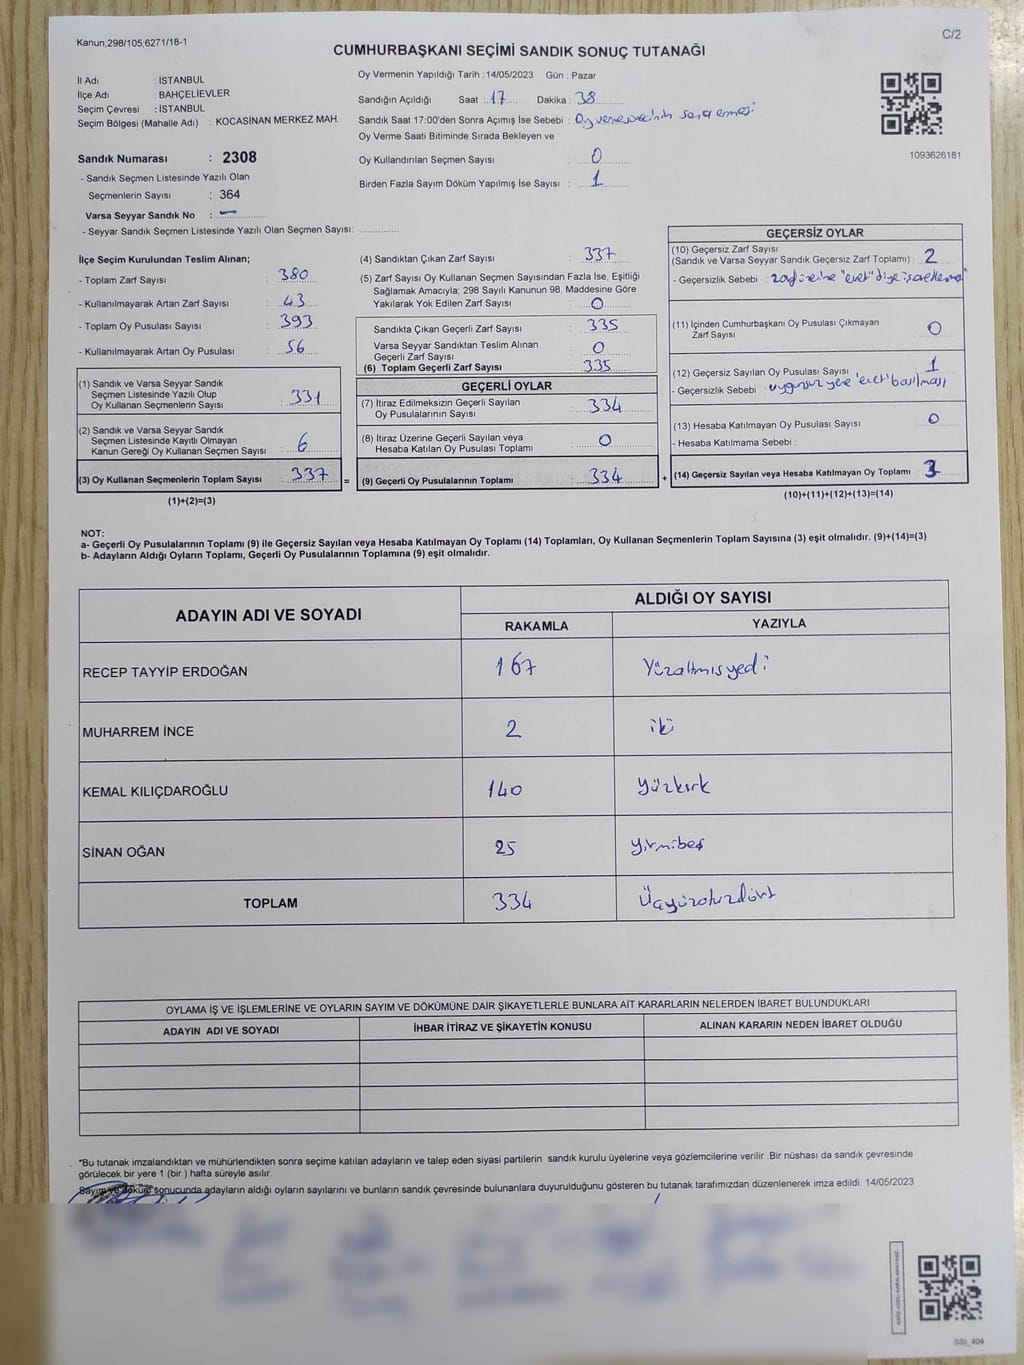 Kanun;298/105;6271/18-1
C/2
CUMHURBAŞKANI SEÇİMİ SANDIK SONUÇ TUTANAĞI
İl Adı : İSTANBUL
İlçe Adı : BAHÇELİEVLER
Seçim Çevresi : İSTANBUL
Seçim Bölgesi (Mahalle Adı) : KOCASİNAN MERKEZ MAH.
Sandık Numarası : 2308
- Sandık Seçmen Listesinde Yazılı Olan
Seçmenlerin Sayısı : 364
Varsa Seyyar Sandık No : -
- Seyyar Sandık Seçmen Listesinde Yazılı Olan Seçmen Sayısı: ..............
Oy Vermenin Yapıldığı Tarih : 14/05/2023 Gün : Pazar
Sandığın Açıldığı Saat : 17 Dakika : 38
Sandık Saat 17:00'den Sonra Açımış İse Sebebi :
Oy Verme Saati Bitiminde Sırada Bekleyen ve
Oy Kullandırılan Seçmen Sayısı : 0
Birden Fazla Sayım Döküm Yapılmış İse Sayısı : 1
1093626181
İlçe Seçim Kurulundan Teslim Alınan;
- Toplam Zarf Sayısı : 380
- Kullanılmayarak Artan Zarf Sayısı : 43
- Toplam Oy Pusulası Sayısı : 393
- Kullanılmayarak Artan Oy Pusulası : 56
(1) Sandık ve Varsa Seyyar Sandık
Seçmen Listesinde Yazılı Olup
Oy Kullanan Seçmenlerin Sayısı : 331
(2) Sandık ve Varsa Seyyar Sandık
Seçmen Listesinde Kayıtlı Olmayan
Kanun Gereği Oy Kullanan Seçmen Sayısı : 6
(3) Oy Kullanan Seçmenlerin Toplam Sayısı : 337 =
(1)+(2)=(3)
(4) Sandıktan Çıkan Zarf Sayısı : 337
(5) Zarf Sayısı Oy Kullanan Seçmen Sayısından Fazla İse, Eşitliği
Sağlamak Amacıyla; 298 Sayılı Kanunun 98. Maddesine Göre
Yakılarak Yok Edilen Zarf Sayısı : 0
Sandıkta Çıkan Geçerli Zarf Sayısı : 335
Varsa Seyyar Sandıktan Teslim Alınan
Geçerli Zarf Sayısı : 0
(6) Toplam Geçerli Zarf Sayısı : 335
GEÇERLİ OYLAR
(7) İtiraz Edilmeksizin Geçerli Sayılan
Oy Pusulalarının Sayısı : 334
(8) İtiraz Üzerine Geçerli Sayılan veya
Hesaba Katılan Oy Pusulası Toplamı : 0
(9) Geçerli Oy Pusulalarının Toplamı : 334 +
GEÇERSİZ OYLAR
(10) Geçersiz Zarf Sayısı
(Sandık ve Varsa Seyyar Sandık Geçersiz Zarf Toplamı) : 2
- Geçersizlik Sebebi : zarf üzerine "evet" diye işaretlemesi
(11) İçinden Cumhurbaşkanı Oy Pusulası Çıkmayan
Zarf Sayısı : 0
(12) Geçersiz Sayılan Oy Pusulası Sayısı : 1
- Geçersizlik Sebebi : uygunsuz yere 'evet' basılması
(13) Hesaba Katılmayan Oy Pusulası Sayısı : 0
- Hesaba Katılmama Sebebi :
(14) Geçersiz Sayılan veya Hesaba Katılmayan Oy Toplamı : 3
(10)+(11)+(12)+(13)=(14)
NOT:
a- Geçerli Oy Pusulalarının Toplamı (9) ile Geçersiz Sayılan veya Hesaba Katılmayan Oy Toplamı (14) Toplamları, Oy Kullanan Seçmenlerin Toplam Sayısına (3) eşit olmalıdır. (9)+(14)=(3)
b- Adayların Aldığı Oyların Toplamı, Geçerli Oy Pusulalarının Toplamına (9) eşit olmalıdır.
ADAYIN ADI VE SOYADI ALDIĞI OY SAYISI
RAKAMLA YAZIYLA
RECEP TAYYİP ERDOĞAN 167 Yüzaltmışyedi
MUHARREM İNCE 2 iki
KEMAL KILIÇDAROĞLU 140 Yüzkırk
SİNAN OĞAN 25 yirmibeş
TOPLAM 334 Üçyüzotuzdört
OYLAMA İŞ VE İŞLEMLERİNE VE OYLARIN SAYIM VE DÖKÜMÜNE DAİR ŞİKAYETLERLE BUNLARA AİT KARARLARIN NELERDEN İBARET BULUNDUKLARI
ADAYIN ADI VE SOYADI İHBAR İTİRAZ VE ŞİKAYETİN KONUSU ALINAN KARARIN NEDEN İBARET OLDUĞU
*Bu tutanak imzalandıktan ve mühürlendikten sonra seçime katılan adayların ve talep eden siyasi partilerin sandık kurulu üyelerine veya gözlemcilerine verilir .Bir nüshası da sandık çevresinde
görülecek bir yere 1 (bir ) hafta süreyle asılır.
Sayım ve döküm sonucunda adayların aldığı oyların sayılarını ve bunların sandık çevresinde bulunanlara duyurulduğunu gösteren bu tutanak tarafımızdan düzenlenerek imza edildi. 14/05/2023